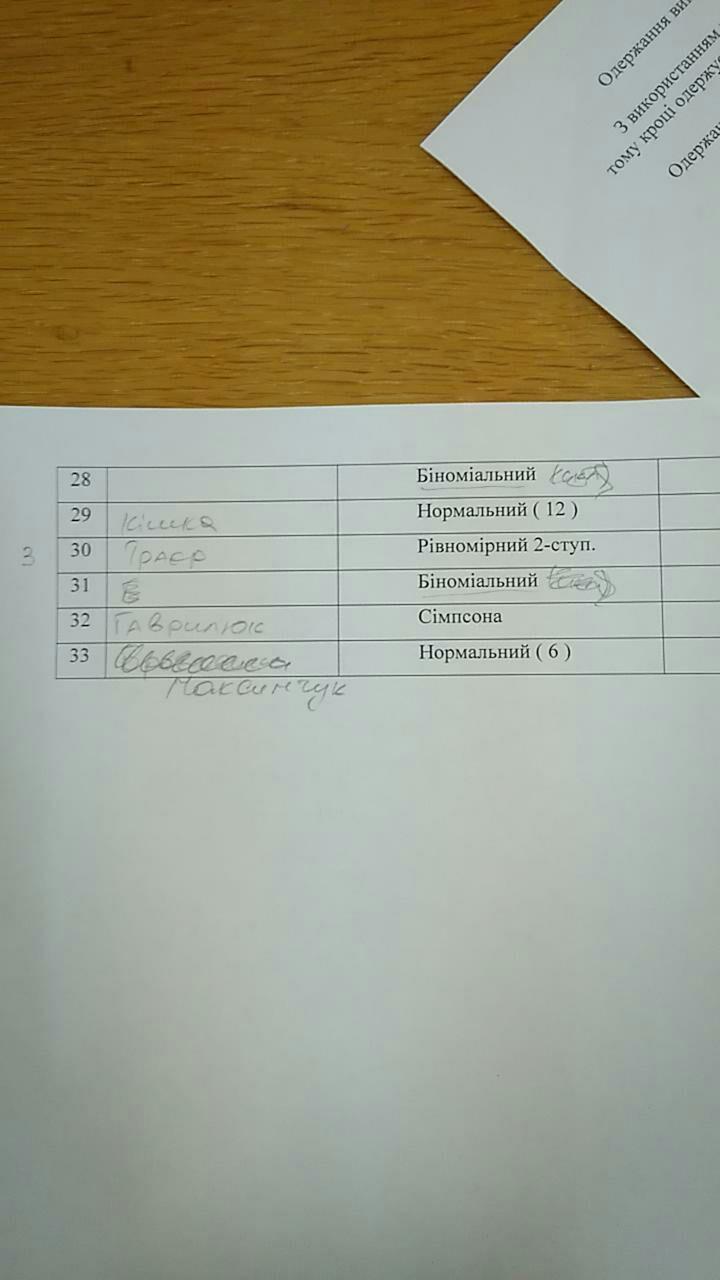 Одержання ви
З використанням
тому кроці одержує
Одержа
28 Біноміальний
29 Кішка Нормальний ( 12 )
3 30 Траєр Рівномірний 2-ступ.
31 Біноміальний
32 Гаврилюк Сімпсона
33 Нормальний ( 6 )
Максимчук